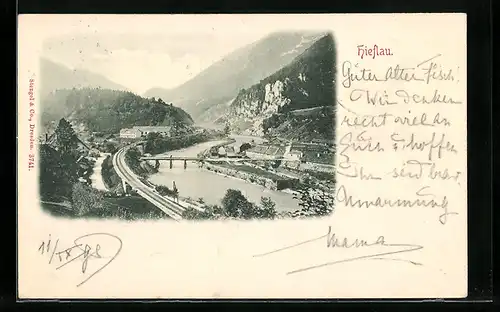 Hieflau.
Stengel & Co., Dresden. 3741.
Guten Alten Fisch!
Wir denken
recht viel an
Euch & hoffen
Ihr seid brav
Umarmung
Mama